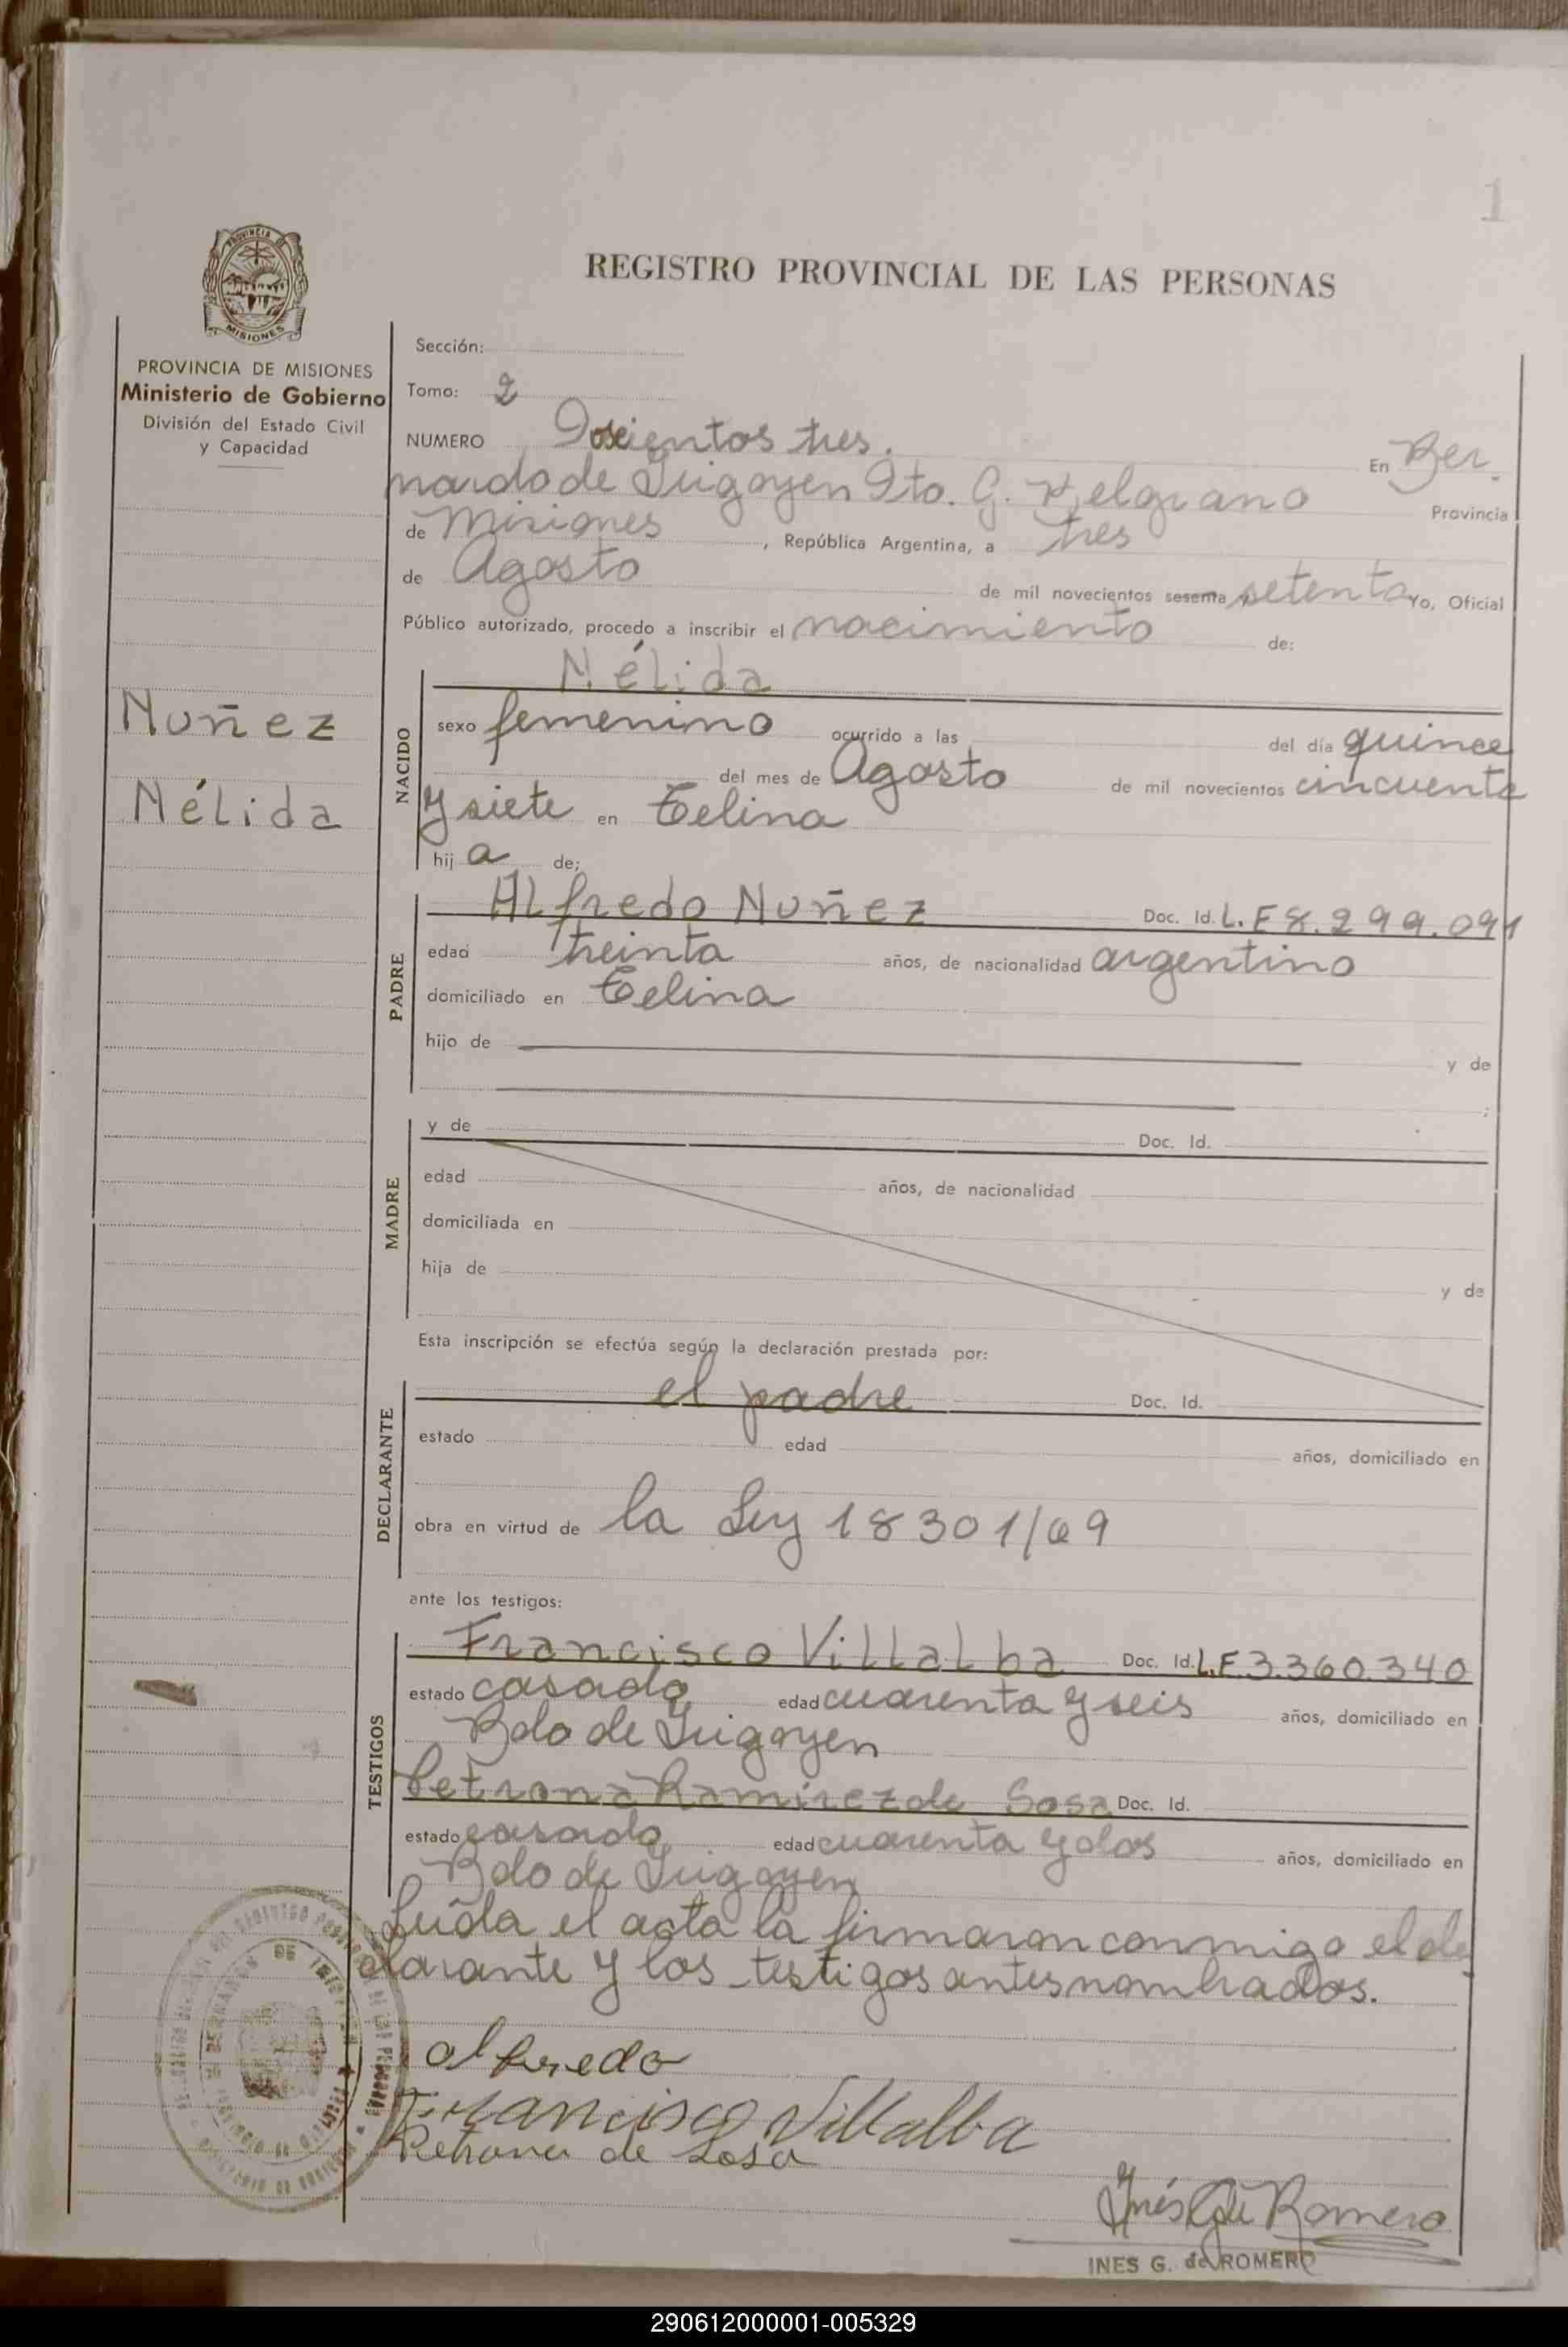 1
PROVINCIA DE
MISIONES
REGISTRO PROVINCIAL DE LAS PERSONAS
PROVINCIA DE MISIONES
Ministerio de Gobierno
División del Estado Civil
y Capacidad
Sección:
Tomo: 2
NUMERO Doscientos tres. En Ber
nardo de Irigoyen Dto. G. Belgrano Provincia
de Misiones, República Argentina, a tres
de Agosto de mil novecientos sesenta setenta Yo, Oficial
Público autorizado, procedo a inscribir el nacimiento de:
Nuñez
Nélida
NACIDO
Nélida
sexo femenino ocurrido a las del día quince
del mes de Agosto de mil novecientos cincuenta
y siete en Celina
hija de;
PADRE
Alfredo Nuñez Doc. Id. L.E 8.299.091
edad treinta años, de nacionalidad argentino
domiciliado en Celina
hijo de y de
;
MADRE
y de Doc. Id.
edad años, de nacionalidad
domiciliada en
hija de y de
Esta inscripción se efectúa según la declaración prestada por:
DECLARANTE
el padre Doc. Id.
estado edad años, domiciliado en
obra en virtud de la Ley 18301/69
ante los testigos:
TESTIGOS
Francisco Villalba Doc. Id. L.E 3.360.340
estado casado edad cuarenta y seis años, domiciliado en
Bdo de Irigoyen
Petrona Ramirez de Sosa Doc. Id.
estado casada edad cuarenta y dos años, domiciliado en
Bdo de Irigoyen
Leída el acta la firmaron conmigo el de
clarante y los testigos antes nombrados.
alfredo
Francisco Villalba
Petrona de Sosa
Inés G. de Romero
INES G. de ROMERO
290612000001-005329